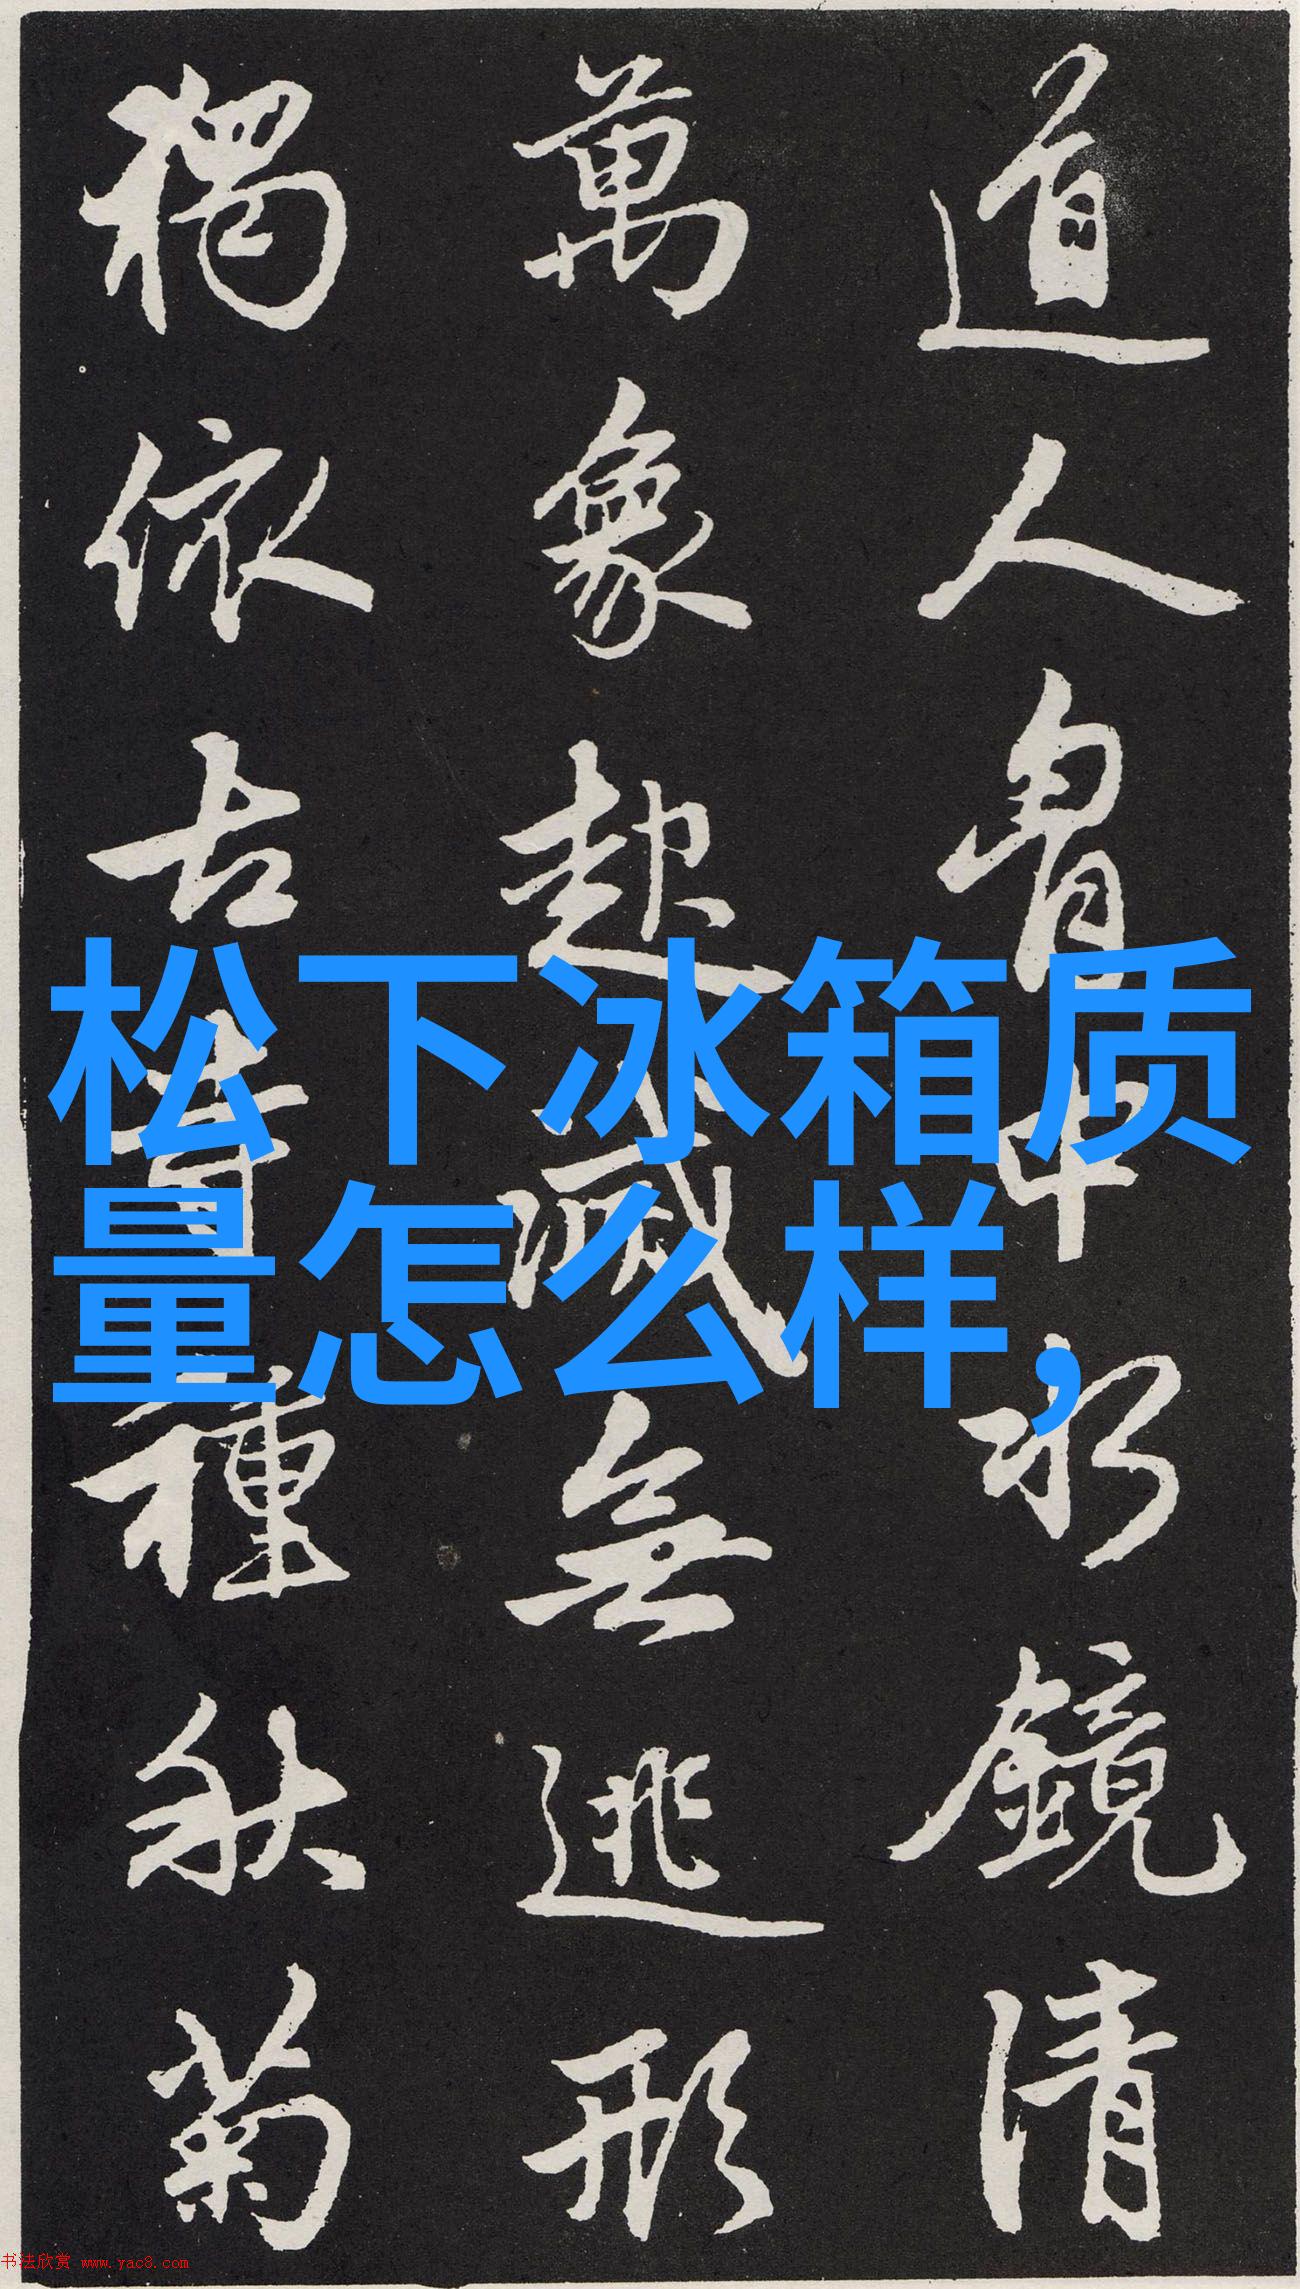 道人胷中水鏡清
萬象起滅無逃形
獨依古寺種秋菊
松下冰箱质
量怎么样,
书法欣赏 www.yac8.com